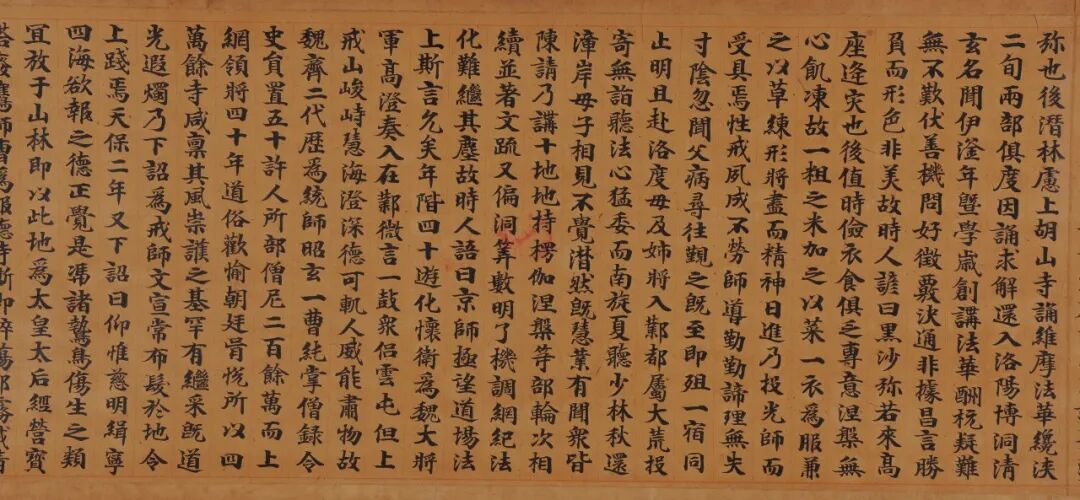 弥也後潛林慮上胡山寺誦維摩法華纔浹
二旬兩部俱度因誦求解還入洛陽博洞清
玄名聞伊滏年暨學歲創講法華酬抗疑難
無不歎伏善機問好徵覈決通非據昌言勝
負而形色非美故時人諺曰黑沙弥若來高
座逢灾也後值時儉衣食俱乏專意涅槃無
心飢凍故一粗之米加之以菜一衣為服兼
之以草練形將盡而精神日進乃投光師而
受具焉性戒夙成不勞師導勤勤諦理無失
寸陰忽聞父病尋往覲之既至即殂一宿同
止明旦赴洛度母及姊將入鄴都屬大荒投
寄無詣聽法心猛委而南旋夏聽少林秋還
漳岸母子相見不覺潸然既慧業有聞衆皆
陳請乃講十地地持楞伽涅槃等部輪次相
續並著文疏又偏洞筭數明了機調網紀法
化難繼其塵故時人語曰京師極望道場法
上斯言允矣年階四十遊化懷衛為魏大將
軍高澄奏入在鄴微言一鼓衆侶雲屯但上
戒山峻峙慧海澄深德可軌人威能肅物故
魏齊二代歷為統師昭玄一曹純掌僧錄令
史員置五十許人所部僧尼二百餘萬而上
網領將四十年道俗歡愉朝廷胥悅所以四
萬餘寺咸稟其風崇護之基罕有繼采既道
光遐燭乃下詔為戒師文宣常布髮於地令
上踐焉天保二年又下詔曰仰惟慈明緝寧
四海欲報之德正覺是馮諸鷙鳥傷生之類
宜放于山林即以此地為太皇太后經營寶
塔廢鷹師曹為報德寺斯即碎蕩邪霧